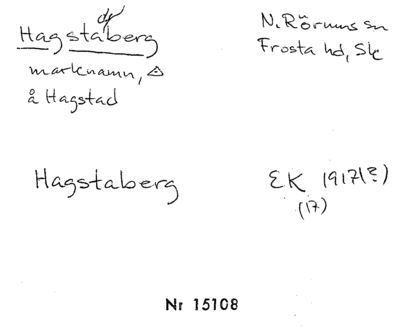 Hagstaberg
N. Rörums sn
Frosta hd, Sk
marknamn,
å Hagstad
Hagstaberg
EK 1917(?)
(17)
Nr 15108